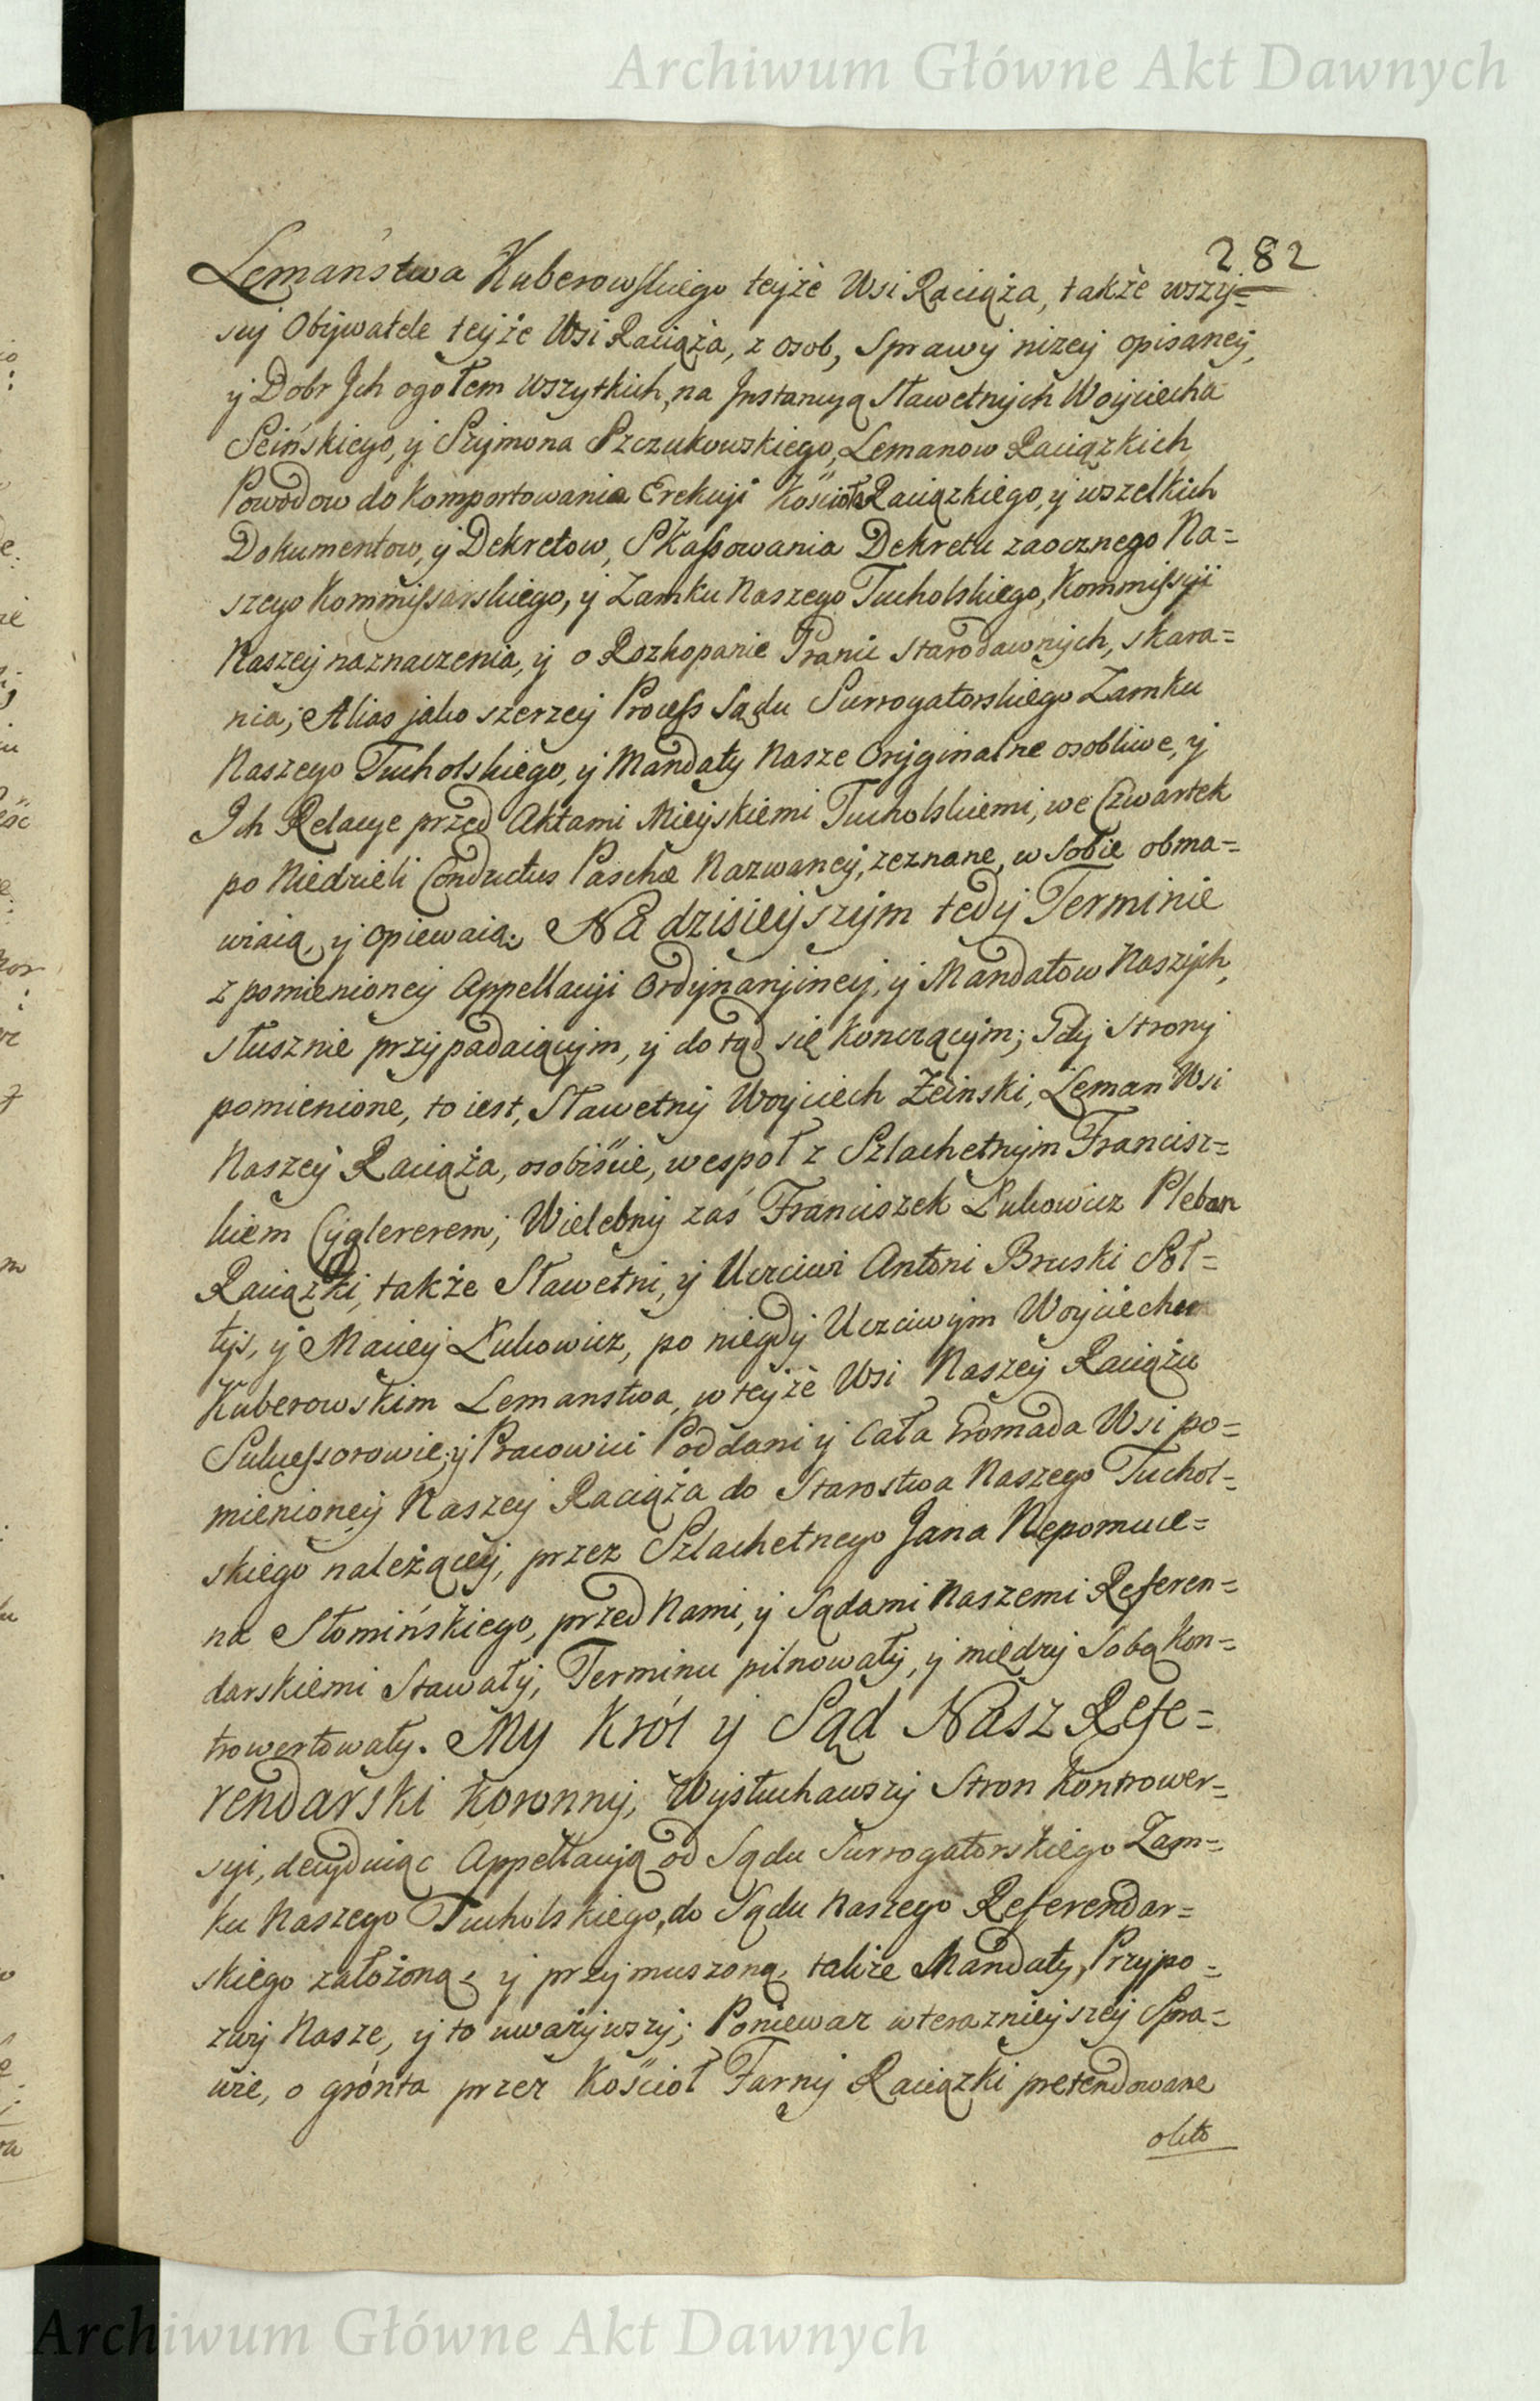 Archiwum Główne Akt Dawnych
282
Lemaństwa Kuberowskiego teyże Wsi Raciąża, także wszy=
scy Obywatele teyże Wsi Raciąża, z osob, Sprawy niżey opisaney,
y Dobr Jch ogołem wszytkich, na Jnstancyą Sławetnych Woyciecha
Seińskiego, y Szymona Szczukowskiego, Lemanow Raciązkich
Powodow do Komportowania Erekcyi Kościoła Raciązkiego, y wszelkich
Dokumentow, y Dekretow, Skassowania Dekretu zaocznego Na=
szego Kommissarskiego, y Zamku Naszego Tucholskiego, Kommissyi
Naszey naznaczenia, y o Rozkopanie Granic starodawnych, skara=
nia; Alias jako szerzey Process Sądu Surrogatorskiego Zamku
Naszego Tucholskiego, y Mandaty Nasze Oryginalne osobliwe, y
Jch Relacye przed Aktami Mieyskiemi Tucholskiemi, we Czwartek
po Niedzieli Conductus Paschæ Nazwaney, zeznane, w sobie obma=
wiaią, y opiewaią. Na dzisieyszym tedy Terminie
z pomienioney Appellacyi Ordynaryiney, y Mandatow Naszych,
słusznie przypadaiącym, y do tąd się kończącym; Gdy Strony
pomienione, to iest, Sławetny Woyciech Zeinski, Leman Wsi
Naszey Raciąża, osobiście, wespoł z Szlachetnym Francisz=
kiem Cyglererem; Wielebny zaś Franciszek Łukowicz Pleban
Raciązki, także Sławetni, y Uczciwi Antoni Bruski Soł=
tys, y Maciey Łukowicz, po niegdy Uczciwym Woyciechu
Kuberowskim Lemanstwa, w teyże Wsi Naszey Raciążu
Sukcessorowie; y Pracowici Poddani y cała Gromada Wsi po=
mienioney Naszey Raciąża do Starostwa Naszego Tuchol=
skiego należącey, przez Szlachetnego Jana Nepomuce=
na Słomińskiego, przed Nami, y Sądami Naszemi Referen=
darskiemi Stawały, Terminu pilnowały, y między Sobą Kon=
trowertowały. My Król y Sąd Nasz Refe=
rendarski Koronny, Wysłuchawszy Stron Kontrower=
syi, decyduiąc Appellacyą od Sądu Surrogatorskiego Zam=
ku Naszego Tucholskiego, do Sądu Naszego Referendar=
skiego założoną, y przymuszoną, także Mandaty, Przypo=
zwy Nasze, y to uważywszy; Ponieważ w teraznieyszey Spra=
wie, o grónta przez Kościoł Farny Raciązki pretendowane
oleto
Archiwum Główne Akt Dawnych